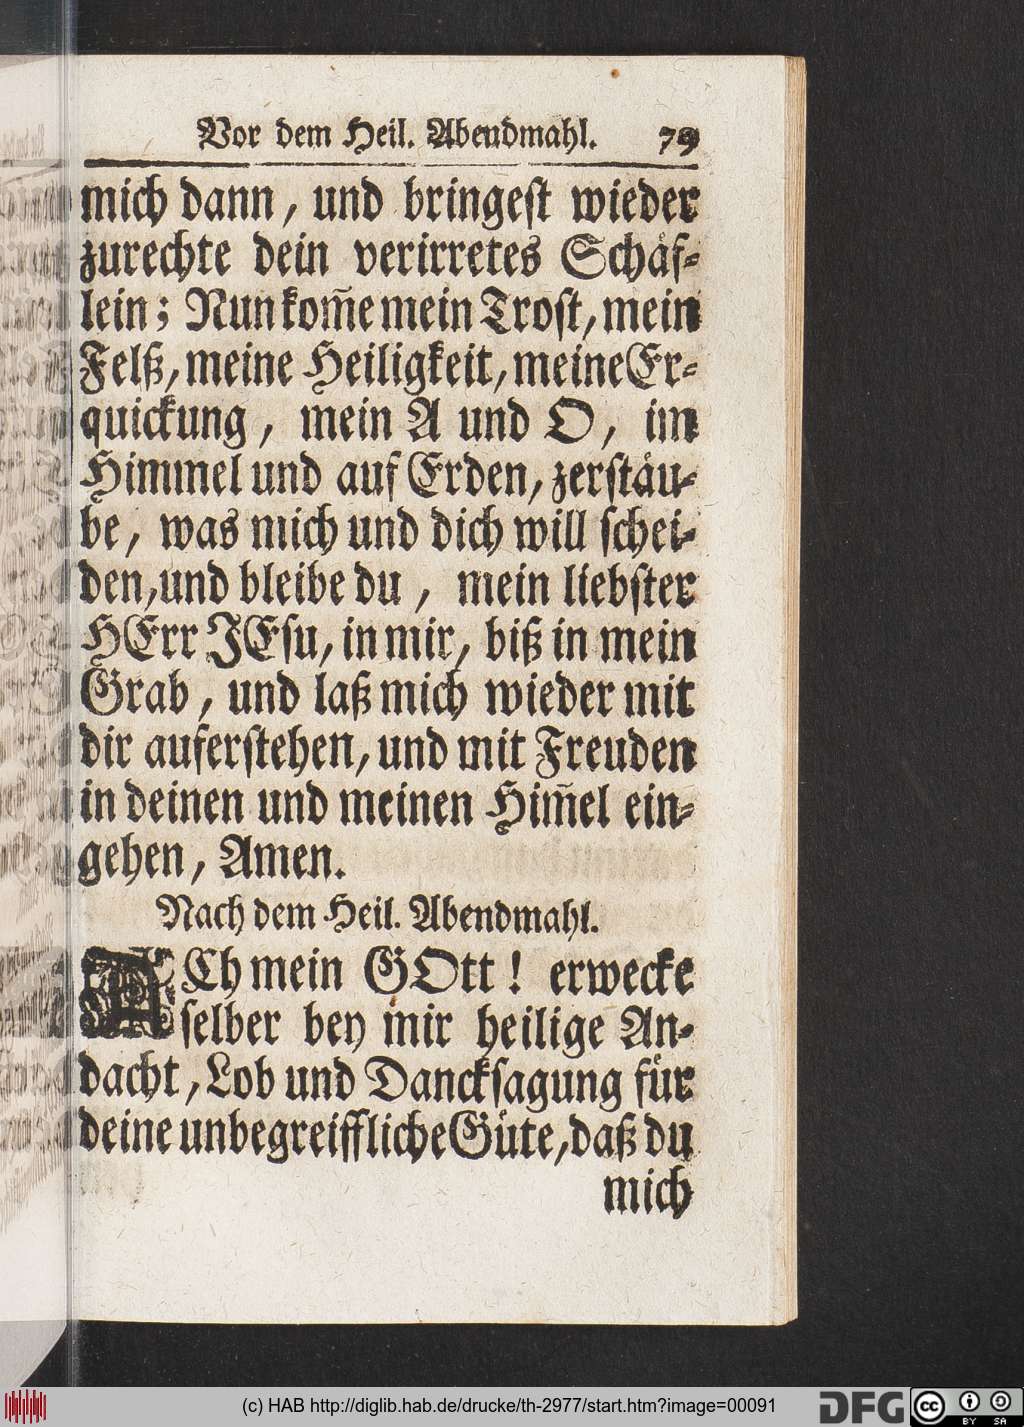 Vor dem Heil. Abendmahl. 79
mich dann, und bringest wieder
zurechte dein verirretes Schäf-
lein; Nun kom̃e mein Trost, mein
Felß, meine Heiligkeit, meine Er-
quickung, mein A und O, im
Himmel und auf Erden, zerstäu-
be, was mich und dich will schei-
den, und bleibe du, mein liebster
HErr JEsu, in mir, biß in mein
Grab, und laß mich wieder mit
dir auferstehen, und mit Freuden
in deinen und meinen Him̃el ein-
gehen, Amen.
Nach dem Heil. Abendmahl.
ACh mein GOtt! erwecke
selber bey mir heilige An-
dacht, Lob und Dancksagung für
deine unbegreiffliche Güte, daß du
mich
(c) HAB http://diglib.hab.de/drucke/th-2977/start.htm?image=00091
DFG
cc BY SA